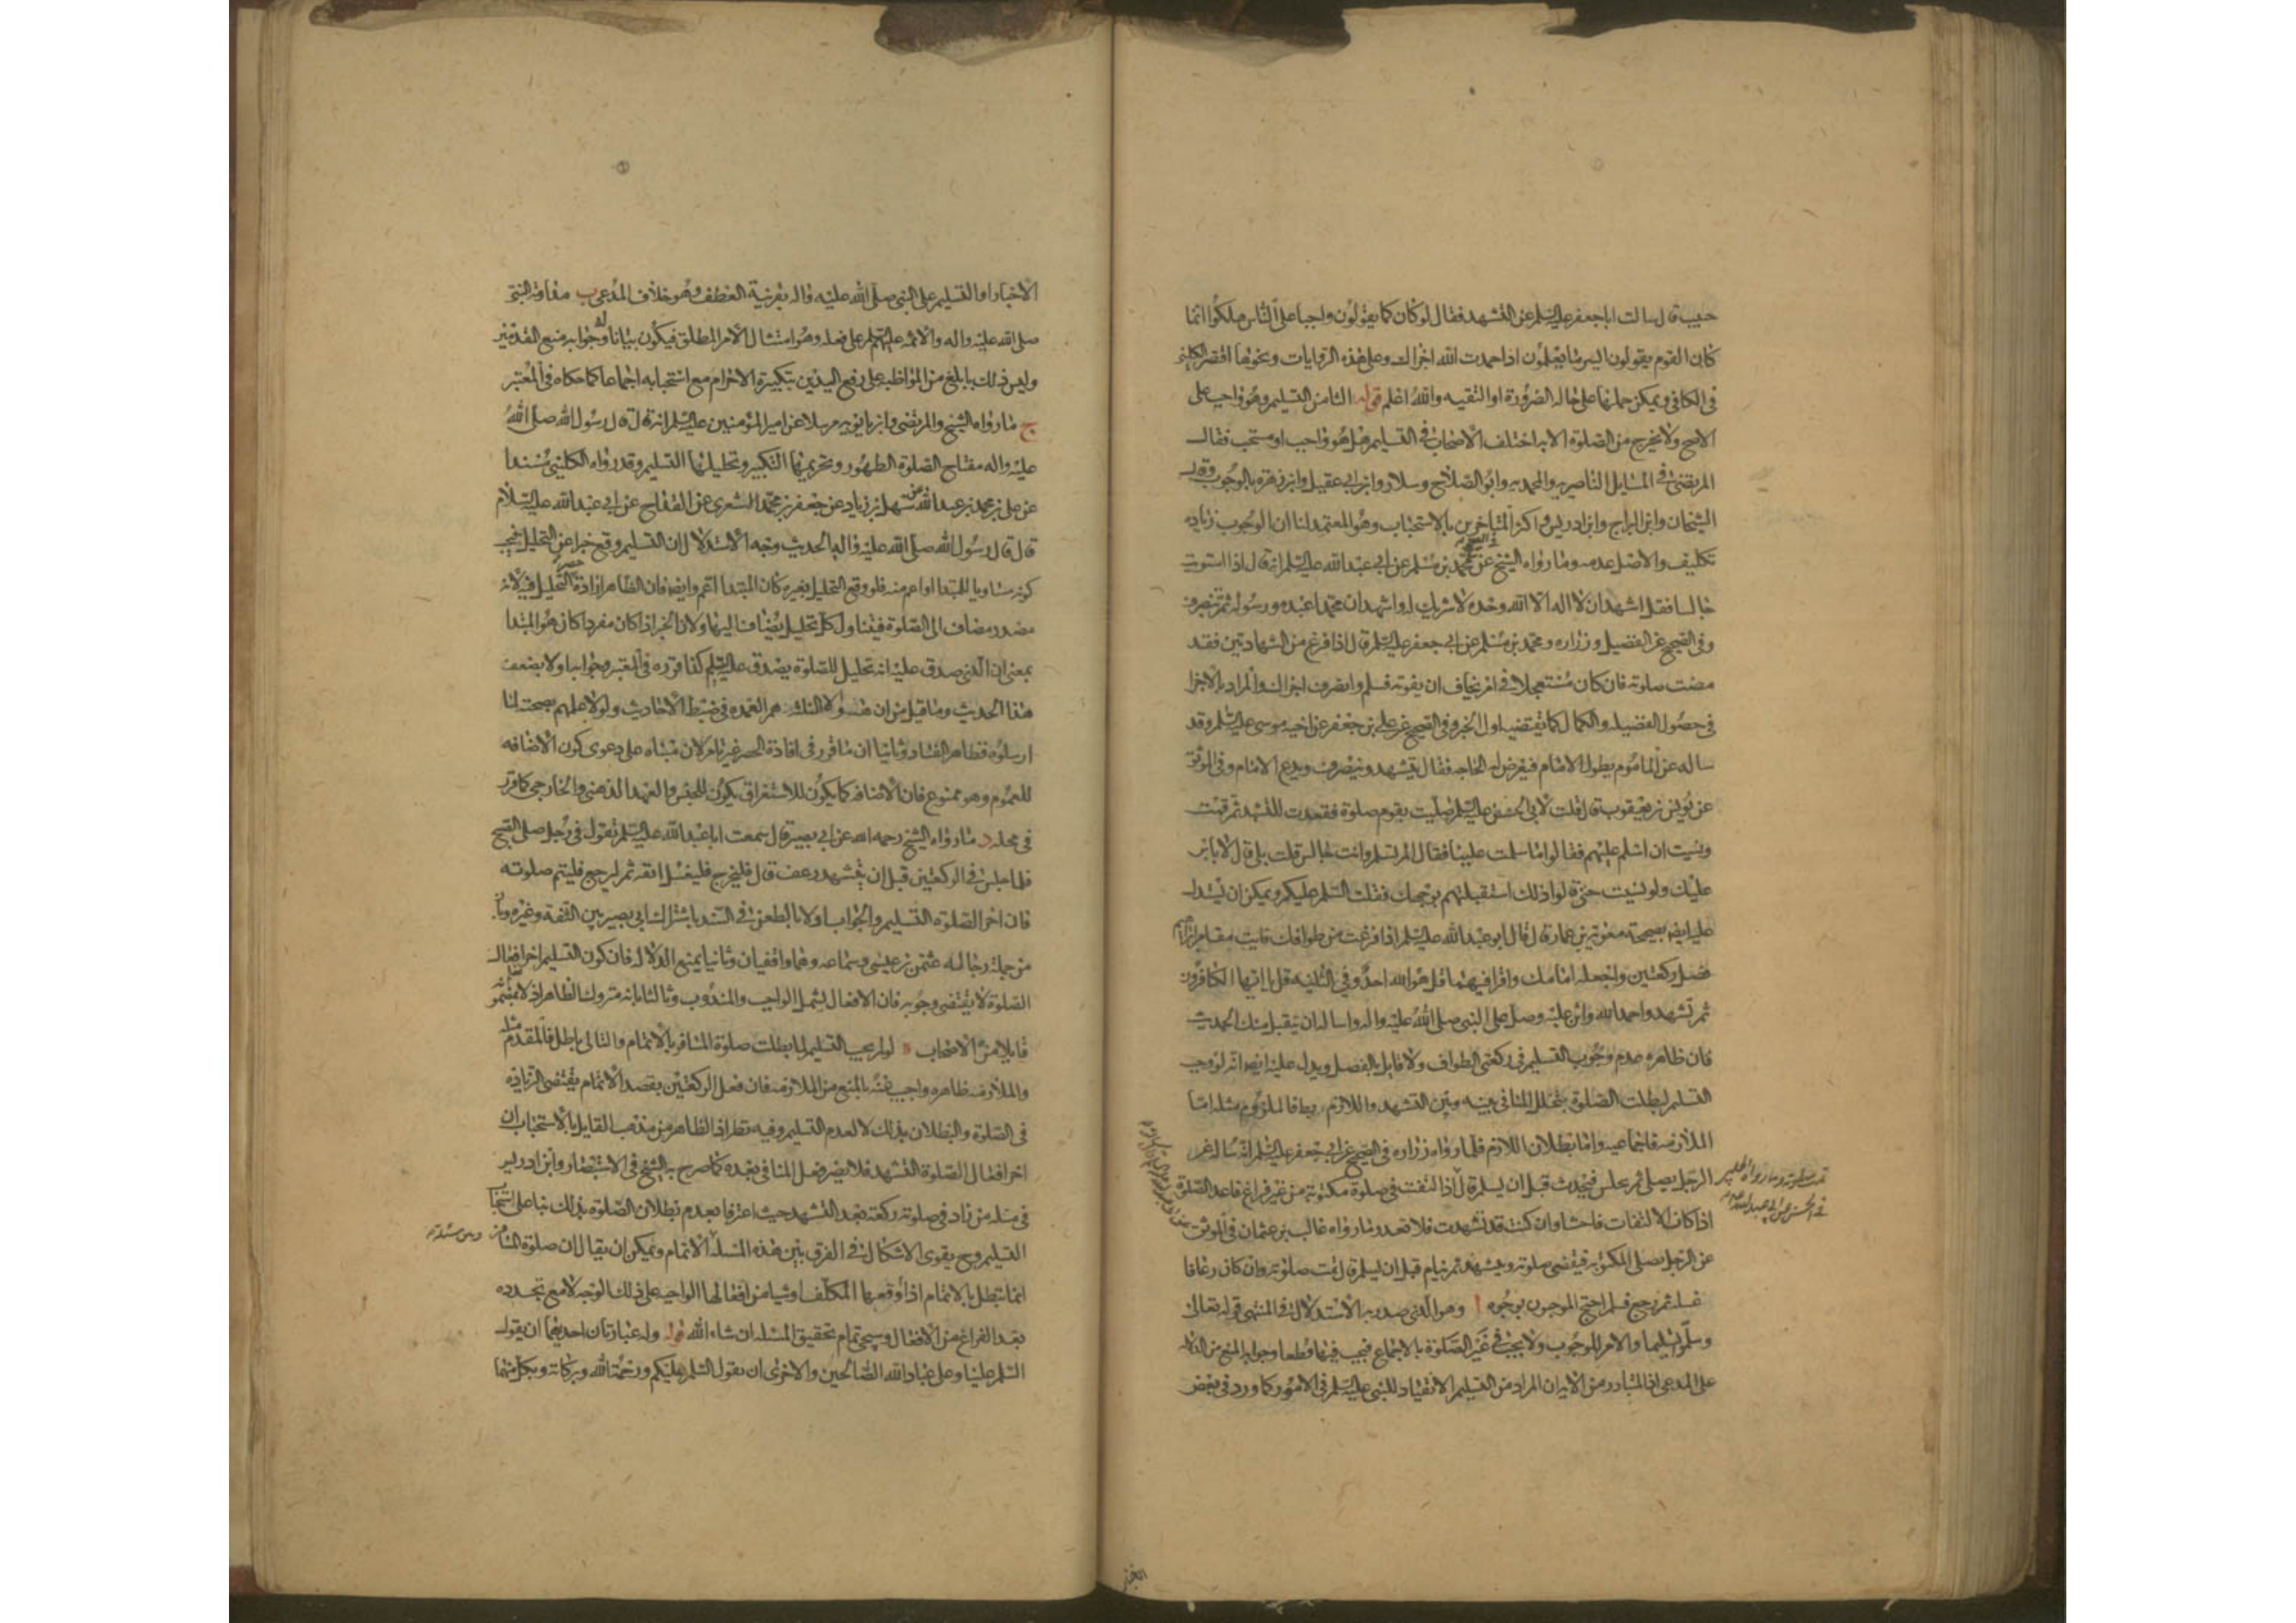 حبيب قال سالت ابا جعفر عليه السلم عن التشهد فقال لو كان كما يقولون واجبا على الناس هلكوا انما
كان القوم يقولون ايسر ما يعلمون اذا حمدت الله اجزاك وعلى هذه الروايات ونحوها اقتصر الكليني
في الكافي ويمكن حملها على حاله الضرورة او التقيه والله اعلم قوله الثامن التسليم وهو واجب على
الاصح ولا يخرج من الصلوة الا به اختلف الاصحاب في التسليم هل هو واجب او مستحب فقال
المرتضى في المسايل الناصريه والمحمديه وابو الصلاح وسلار وابن ابي عقيل وابن زهره بالوجوب وقال
الشيخان وابن البراج وابن ادريس واكثر المتاخرين بالاستحباب وهو المعتمد لنا ان الوجوب زياده
تكليف والاصل عدمه وما رواه الشيخ في الصحيح عن محمد بن مسلم عن ابي عبد الله عليه السلم انه قال اذا استويت
جالسا فقل اشهد ان لا اله الا الله وحده لا شريك له واشهد ان محمدا عبده ورسوله ثم تنصرف
وفي الصحيح عن الفضيل وزراره ومحمد بن مسلم عن ابي جعفر عليه السلم قال اذا فرغ من الشهادتين فقد
مضت صلوته فان كان مستعجلا في امر يخاف ان يفوته فسلم وانصرف اجزاك والمراد بالاجزا
في حصول الفضيله والكمال كما يقتضيه اول الخبر وفي الصحيح عن علي بن جعفر عن اخيه موسى عليه السلم وقد
ساله عن الماموم يطول الامام فيعرض له الحاجه فقال يتشهد وينصرف ويدع الامام وفي الموثق
عن يونس بن يعقوب قال قلت لابي الحسن عليه السلم صليت بقوم صلوة فقعدت للتشهد ثم قمت
ونسيت ان اسلم عليهم فقالوا ما سلمت علينا فقال الم تسلم وانت جالس قلت بلى قال لا باس
عليك ولو نسيت حتى قالوا ذلك استقبلتهم بوجهك فقلت السلم عليكم ويمكن ان يستدل
عليه ايضا بصحيحة معوية بن عمار قال قال ابو عبد الله عليه السلم اذا فرغت من طوافك فايت مقام ابراهيم
فصل ركعتين واجعله امامك واقرا فيهما قل هو الله احد وفي الثانيه قل يا ايها الكافرون
ثم تشهد واحمد الله واثن عليه وصل على النبي صلى الله عليه واله واساله ان يتقبل منك الحديث
فان ظاهره عدم وجوب التسليم في ركعتي الطواف ولا قايل بالفصل ويدل عليه ايضا انه لو وجب
التسليم لبطلت الصلوة بتخلل المنافي بينه وبين التشهد واللازم فالملزوم مثله اما
الملازمه فاجماعيه واما بطلان اللازم فلما رواه زراره في الصحيح عن ابي جعفر عليه السلم انه ساله عن
الرجل يصلي ثم يجلس فيحدث قبل ان يسلم قال اذا التفت في صلوة مكتوبة من غير فراغ فاعد الصلوة
اذا كان الالتفات فاحشا وان كنت قد تشهدت فلا تعد وما رواه غالب بن عثمان في الموثق
عن الرجل يصلي المكتوبه فيقضي صلوته ويتشهد ثم ينام قبل ان يسلم قال تمت صلوته وان كان رعافا
غسله ثم رجع فسلم احتج الموجبون بوجوه ا وهو الذي صدر به الاستدلال في المنتهى قوله تعالى
وسلموا تسليما والامر للوجوب ولا يجب في غير الصلوة بالاجماع فيجب فيها قطعا وجوابه المنع من الدلاله
على المدعى اذ المتبادر من الاية ان المراد من التسليم الانقياد للنبي عليه السلم في الامور وكما ورد في بعض
تمت صلوته وما رواه الحلبي
في الحسن عن ابي عبد الله عليه السلم
الاخبار او التسليم على النبي صلى الله عليه واله بقرينة العطف وهو خلاف المدعى ب مداومة النبي
صلى الله عليه واله والائمه عليهم السلم على فعله وهو امتثال الامر المطلق فيكون بيانا له وجوابه منع المقدمتين
وليس ذلك بابلغ من المواظبه على رفع اليدين بتكبيرة الاحرام مع استحبابه اجماعا كما حكاه في المعتبر
ج ما رواه الشيخ والمرتضى وابن بابويه مرسلا عن امير المؤمنين عليه السلم انه قال قال رسول الله صلى الله
عليه واله مفتاح الصلوة الطهور وتحريمها التكبير وتحليلها التسليم وقد رواه الكليني مسندا
عن علي بن محمد بن عبد الله عن سهل بن زياد عن جعفر بن محمد الاشعري عن القداح عن ابي عبد الله عليه السلام
قال قال رسول الله صلى الله عليه واله الحديث وجه الاستدلال ان التسليم وقع خبرا عن التحليل فيجب
كونه مساويا للمبتدا او اعم منه فلو وقع التحليل بغيره كان المبتدا اعم وايضا فان الظاهر ارادة حصر التحليل فيه لانه
مصدر مضاف الى الصلوة فيتناول كل تحليل يضاف اليها ولان الخبر اذا كان مفردا كان هو المبتدا
بمعنى ان الذي صدق عليه انه تحليل للصلوة يصدق عليه التسليم كذا قرره في المعتبر وجوابه اولا بضعف
هذا الحديث وما قيل من ان هؤلاء الثلثه هم العمده في ضبط الاحاديث ولولا علمهم بصحته لما
ارسلوه فظاهر الفساد وثانيا ان ما قرر في افادة الحصر غير تام لان مبناه على دعوى كون الاضافه
للعموم وهو ممنوع فان الاضافه كما يكون للاستغراق يكون للجنس والعهد الذهني والخارجي كما قرر
في محله د ما رواه الشيخ رحمه الله عن ابي بصير قال سمعت ابا عبد الله عليه السلم يقول في رجل صلى الصبح
فلما جلس في الركعتين قبل ان يتشهد رعف قال فليخرج فليغسل انفه ثم ليرجع فليتم صلوته
فان اخر الصلوة التسليم والجواب اولا بالطعن في السند باشتراك ابي بصير بين الثقة وغيره وبان
من جملة رجاله عثمن بن عيسى وسماعه وهما واقفيان وثانيا بمنع الدلاله فان كون التسليم اخر افعال
الصلوة لا يقتضي وجوبه فان الافعال يشمل الواجب والمندوب وثالثا بانه متروك الظاهر اذ لا نعلم بمضمونه
قايلا من الاصحاب ه لو لم يجب التسليم لما بطلت صلوة المسافر بالاتمام والتالي باطل فالمقدم مثله
والملازمه ظاهره واجيب عنه بالمنع من الملازمه فان فعل الركعتين بقصد الاتمام يقتضي الزياده
في الصلوة والبطلان بذلك لا لعدم التسليم وفيه نظر اذ الظاهر من مذهب القايل بالاستحباب ان
اخر افعال الصلوة التشهد فلا يضر فعل المنافي بعده كما صرح به الشيخ في الاستبصار وابن ادريس
في مسئله من زاد في صلوته ركعة بعد التشهد حيث اعترفا بعدم بطلان الصلوة بذلك بناء على استحباب
التسليم وح يقوى الاشكال في الفرق بين هذه المسئلة الاتمام ويمكن ان يقال ان صلوة المسافر
انما تبطل بالاتمام اذا اوقعها المكلف او شيا من افعالها الواجبه على ذلك الوجه لا مع تجدده
بعد الفراغ من الافعال وسيجيء تمام تحقيق المسئله ان شاء الله قوله وله عبارتان احديهما ان يقول
السلم علينا وعلى عباد الله الصالحين والاخرى ان يقول السلم عليكم ورحمة الله وبركاته وبكل منهما
وبين مسئلة